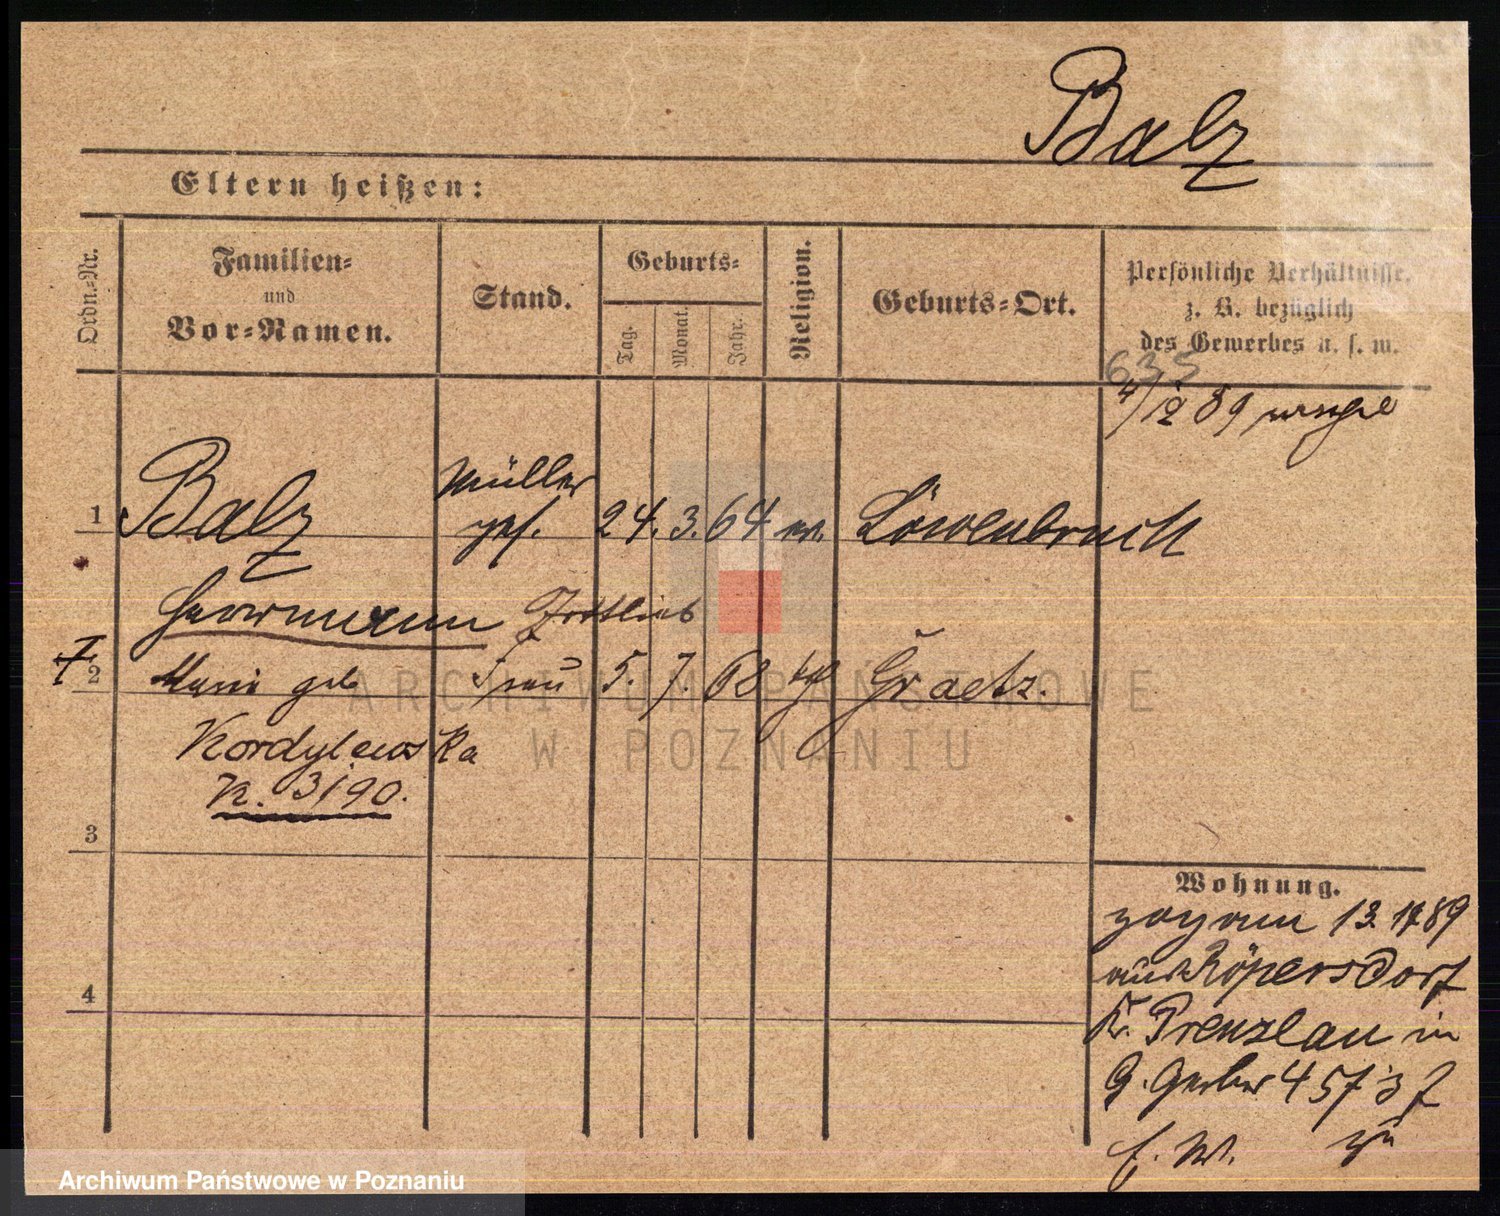 Balz
Eltern heißen:
Ordn.-Nr.
Familien-
und
Vor-Namen.
Stand.
Geburts-
Tag.
Monat.
Jahr.
Religion.
Geburts-Ort.
Persönliche Verhältnisse,
z. B. bezüglich
des Gewerbes u. s. w.
635
4/12 89
1 Balz Müller 24. 3. 64 ev. Löwenbruch
Herrmann Gottlieb
2 Marie geb Frau 5. 7. 68 kth Graetz.
Kordylewska
K. 3/90.
3
4
Wohnung.
zog am 13. 89
aus Röpersdorf
Kr. Prenzlau in
G. Gerber 4
ARCHIWUM PAŃSTWOWE
W POZNANIU
Archiwum Państwowe w Poznaniu